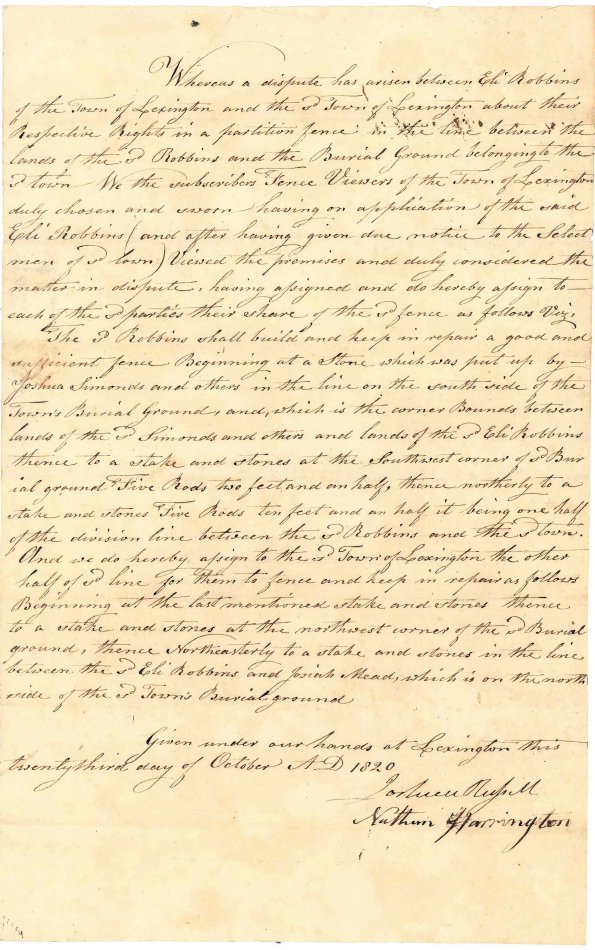 Whereas a dispute has arisen between Eli Robbins
of the Town of Lexington and the sd Town of Lexington about their
Respective Rights in a partition fence in the line between the
lands of the sd Robbins and the Burial Ground belonging to the
sd town We the subscribers Fence Viewers of the Town of Lexington
duly chosen and sworn having on application of the said
Eli Robbins (and after having given due notice to the Select
men of sd town) Viewed the premises and duly considered the
matter in dispute, having assigned and do hereby assign to—
each of the sd parties their share of the sd fence as follows Viz.
The sd Robbins shall build and keep in repair a good and
sufficient fence Beginning at a Stone which was put up by—
Joshua Simonds and others in the line on the south side of the
Town's Burial Ground, and, which is the corner Bounds between
lands of the sd Simonds and others and lands of the sd Eli Robbins
thence to a stake and stones at the Southwest corner of sd Bur
ial ground Five Rods two feet and an half, thence northerly to a
stake and stones Five Rods ten feet and an half it being one half
of the division line between the sd Robbins and the sd town.
And we do hereby assign to the sd Town of Lexington the other
half of sd line for them to fence and keep in repair as follows
Beginning at the last mentioned stake and stones thence
to a stake and stones at the northwest corner of the sd Burial
ground, thence Northeasterly to a stake and stones in the line
between the sd Eli Robbins and Josiah Mead, which is on the north
side of the sd Town's Burial ground
Given under our hands at Lexington this
twenty third day of October A D 1820
Joshua Russell
Nathan Harrington